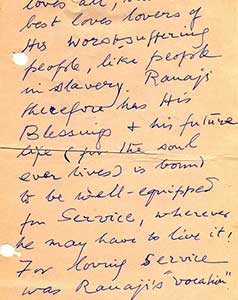 loves all,
best loves lovers of
His worst-suffering
people, like people
in slavery. Ranaji
therefore has His
Blessings & his future
life (for the soul
ever lives) is bound
to be well-equipped
for Service, wherever
he may have to live it!
For loving service
was Ranaji's "vocation"